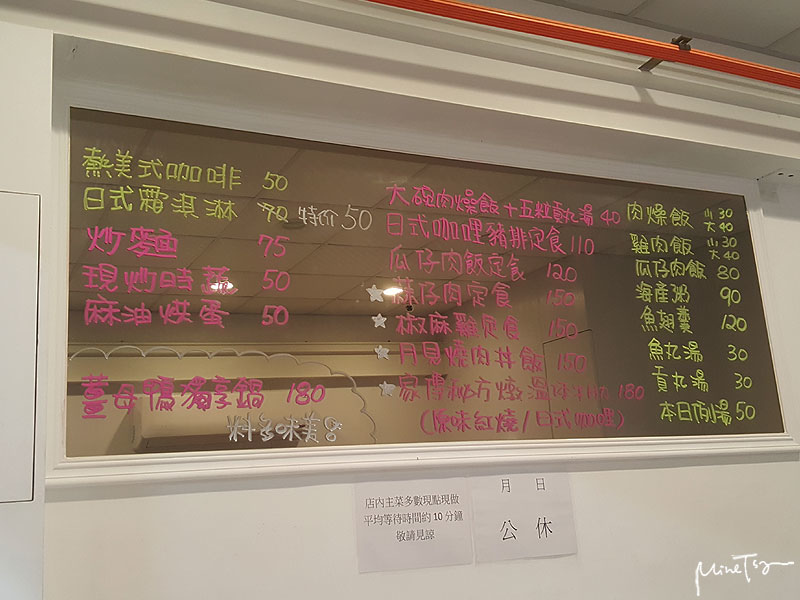 熱美式咖啡 50
日式霜淇淋 70 特价 50
炒麵 75
現炒時蔬 50
麻油烘蛋 50
薑母鴨獨享鍋 180
料多味美
大碗肉燥飯+十五粒貢丸湯 40
日式咖哩豬排定食 110
瓜仔肉飯定食 120
蒜仔肉定食 150
椒麻雞定食 150
月見燒肉丼飯 150
家傳秘方燉 180
(原味紅燒/日式咖哩)
肉燥飯 小 30 大 40
雞肉飯 小 30 大 40
瓜仔肉飯 80
海產粥 90
魚翅羹 120
魚丸湯 30
貢丸湯 30
本日例湯 50
店內主菜多數現點現做
平均等待時間約 10 分鐘
敬請見諒
月 日
公 休